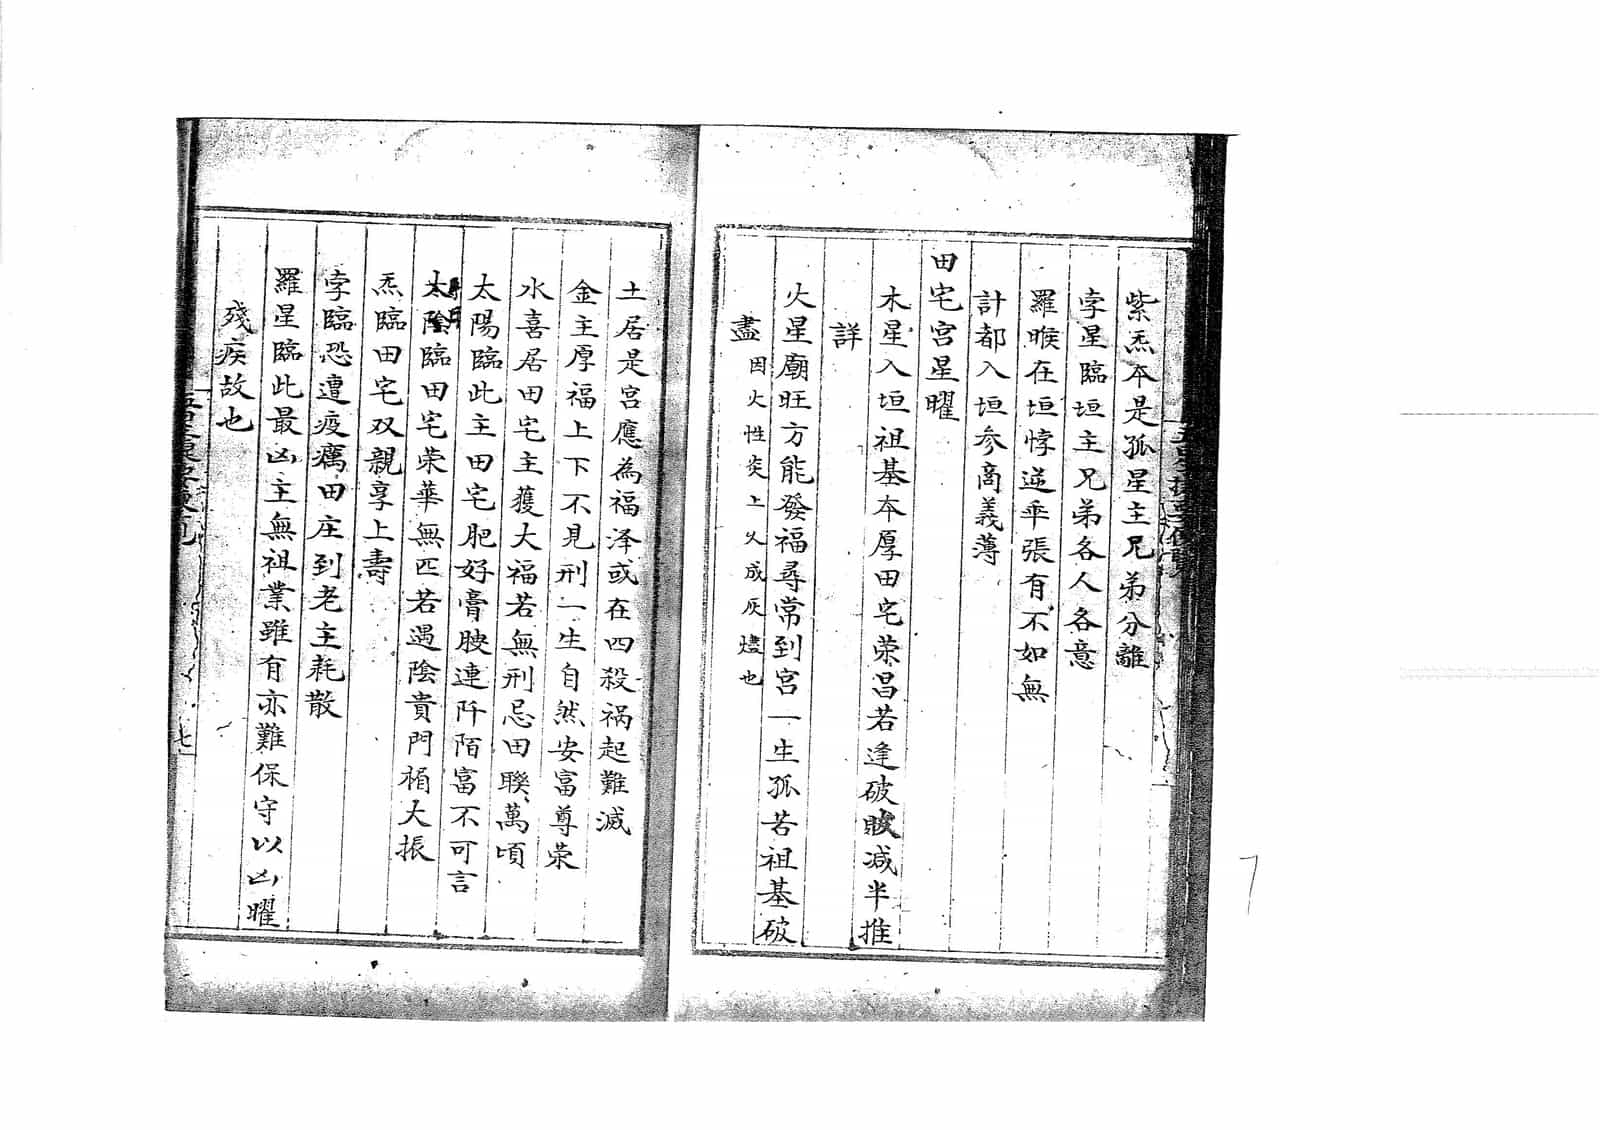 紫炁夲是孤星主兄弟分離
孛星臨垣主兄弟各人各意
羅睺在垣悖逆乖張有不如無
計都入垣參商義薄
田宅宮星曜
木星入垣祖基夲厚田宅荣昌若逢破敗减半推
詳
火星廟旺方能發福尋常到宮一生孤苦祖基破
盡因火性炎上久成灰燼也
土居是宮應為福泽或在四殺祸起難滅
金主厚福上下不見刑一生自然安富尊荣
水喜居田宅主獲大福若無刑忌田聯萬頃
太陽臨此主田宅肥好膏腴連阡陌富不可言
太陰臨田宅荣華無匹若遇陰貴門楣大振
炁臨田宅双親享上壽
孛臨恐遭疫癘田庄到老主耗散
羅星臨此最凶主無祖業雖有亦難保守以凶曜
殘疾故也
七